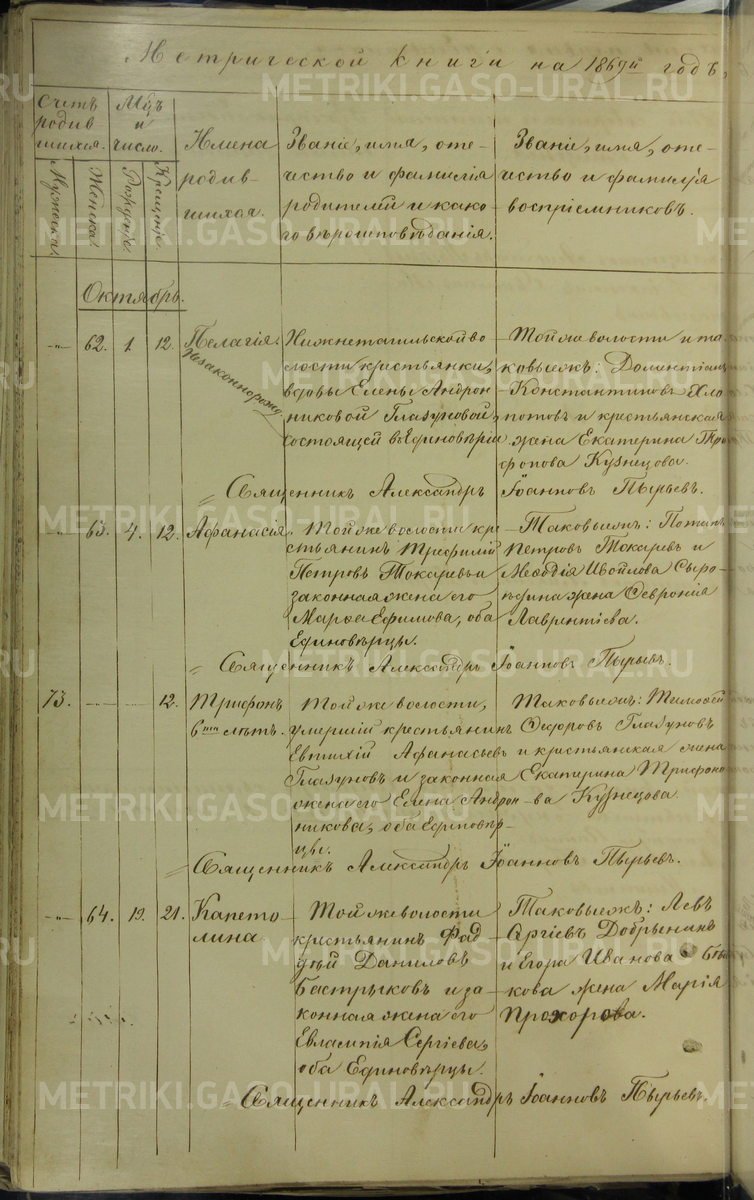 Метрической книги на 1869й годъ,
Счетъ родив шихся.
Мужеска.
Женска.
Мцъ и число.
Рожденiе.
Крещенiе.
Имена родив- шихся.
Званiе, имя, оте- чество и фамилiя родителей и како- го вѣроисповѣданiя.
Званiе, имя, оте- чество и фамилiя воспрiемниковъ.
Октябрь.
62. 1. 12. Пелагiя.
незаконнорожд.
Нижнетагильской во
лости крестьянки,
вдовы Елены Андрон
никовой Глазуновой,
состоящей въ Единовѣрiи
Той же волости и та-
ковыежъ: Дометiанъ
Константиновъ Хло
потовъ и крестьянская
жена Екатерина Три
фонова Кузнецова.
Священникъ Александръ Iоанновъ Пырьевъ.
63. 4. 12. Афанасiя.
Той же волости кре
стьянинъ Трифилiй
Петровъ Токаревъ и
законная жена его
Марѳа Ефимова, оба
Единовѣрцы.
Таковыежъ: Потапъ
Петровъ Токаревъ и
Меѳодiя Ивойлова Сыро-
ѣдина жена Февронiя
Лаврентiева.
Священникъ Александръ Iоанновъ Пырьевъ.
73. 12. Трифонъ
6ти лѣтъ.
Той же волости,
умершiй крестьянинъ
Евтихiй Афанасьевъ
Глазуновъ и законная
жена его Елена Андрон-
никова, оба Единовѣр-
цы.
Таковыежъ: Тимоѳей
Ѳедоровъ Глазуновъ
и крестьянская жена
Екатерина Трифоно
ва Кузнецова.
Священникъ Александръ Iоанновъ Пырьевъ.
64. 19. 21. Капето-
лина.
Той же волости
крестьянинъ Фад
дѣй Даниловъ
Бастрыковъ и за-
конная жена его
Евлампiя Сергiева,
оба Единовѣрцы.
Таковыежъ: Левъ
Сергiевъ Добрынинъ
и Егора Иванова
кова жена Марiя
Прохорова.
Священникъ Александръ Iоанновъ Пырьевъ.
METRIKI.GASO-URAL.RU